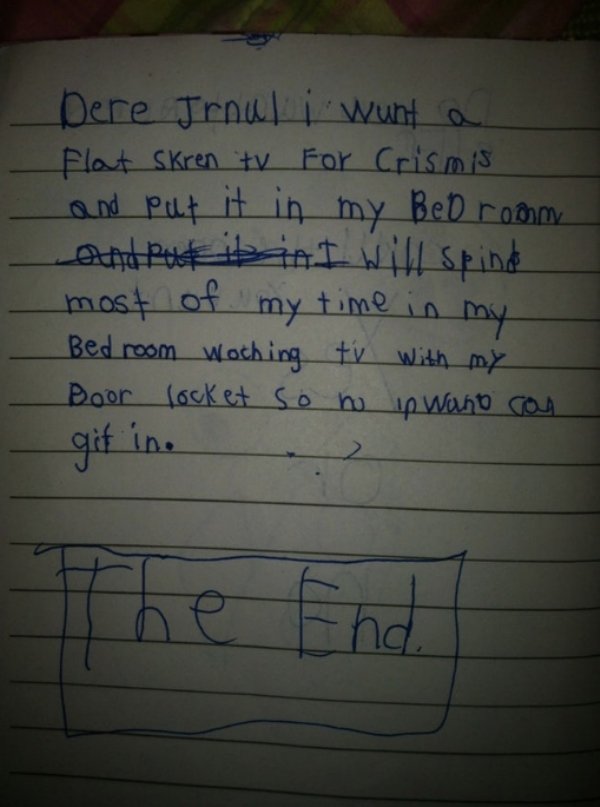 Dere Jrnul i wunt a
Flat skren tv For Crismis
and put it in my BeD room
and put it in I will spind
most of my time in my
Bed room woching tv with my
Door locket so no
can
git in.
The End.